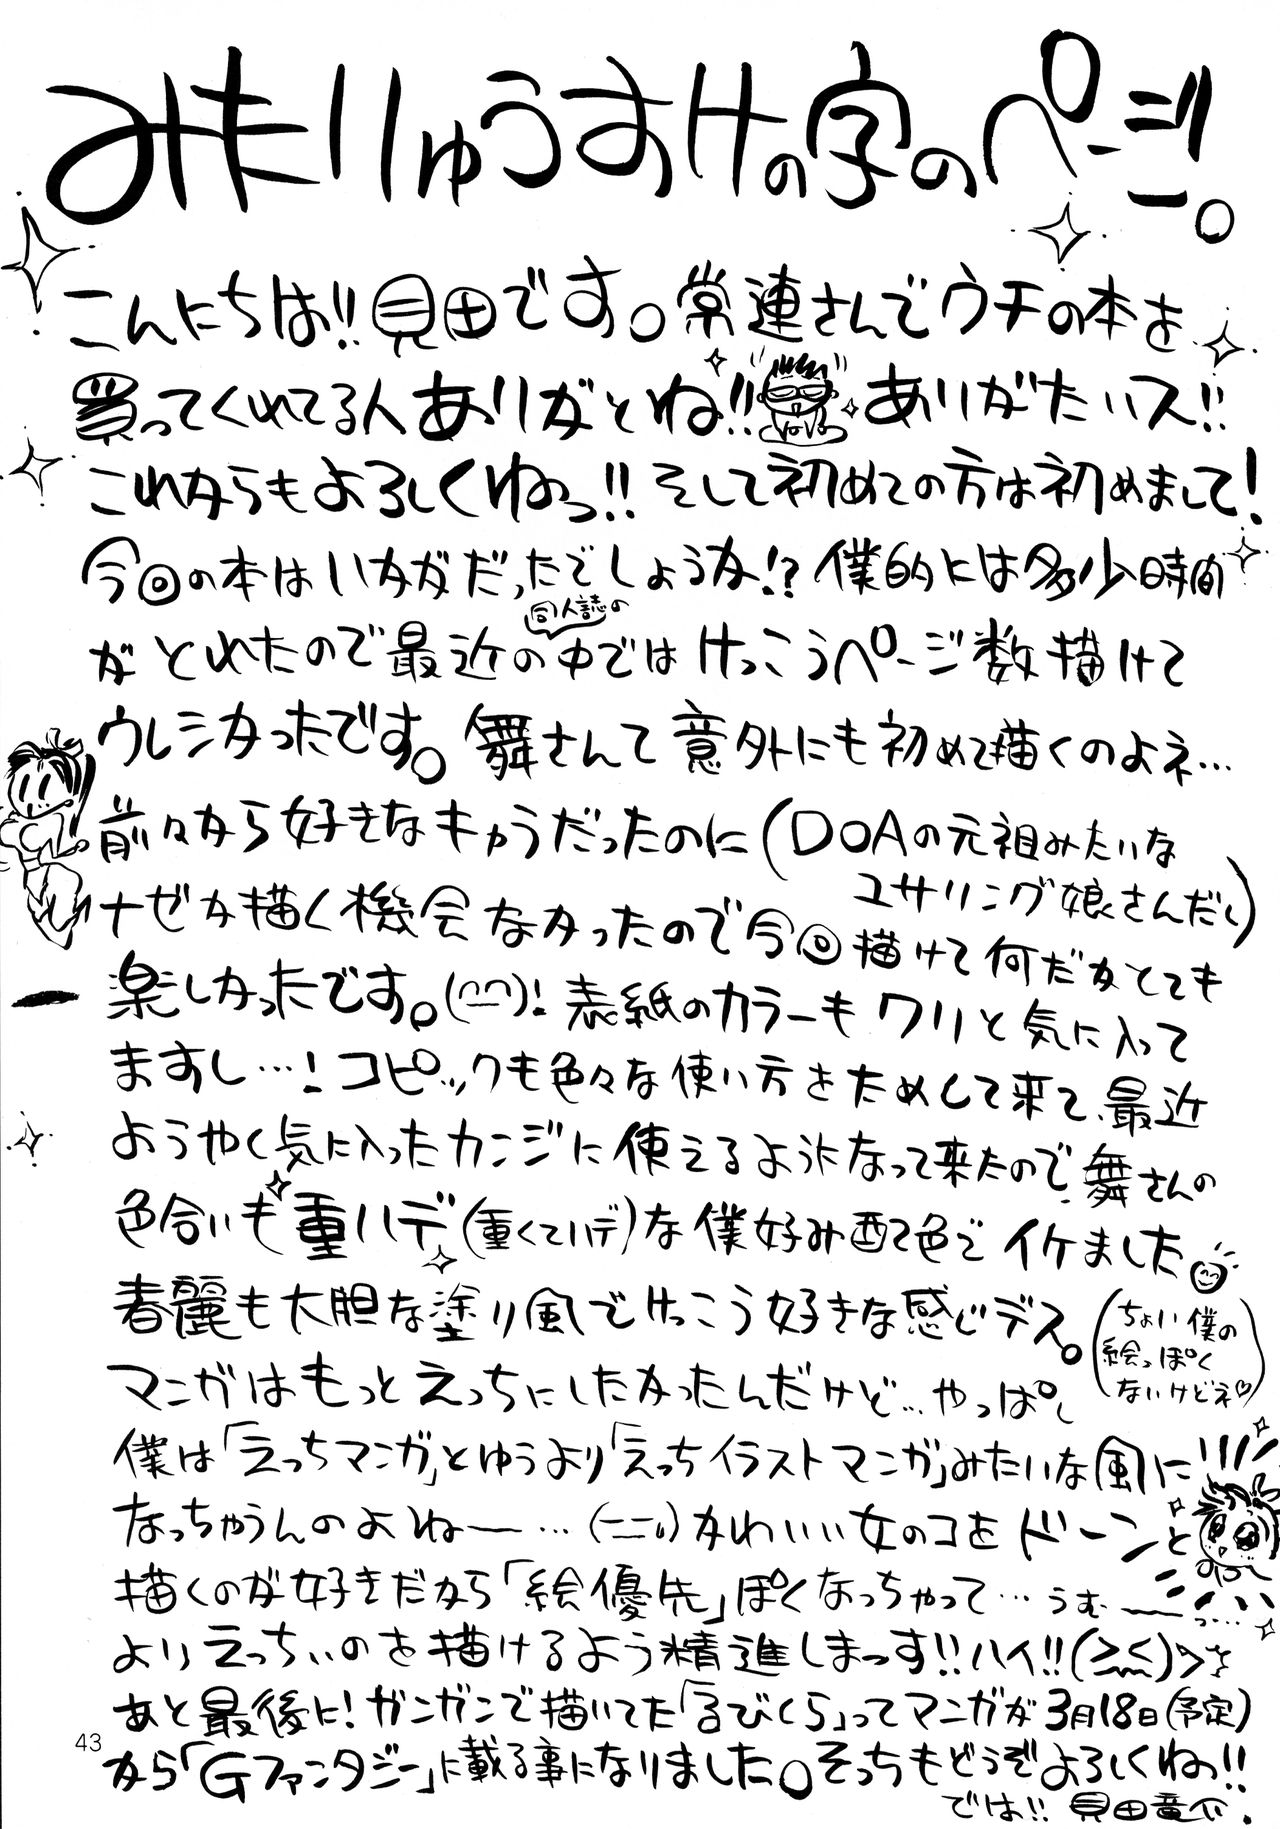 みたりゅうすけの字のページ。
こんにちは!!見田です。常連さんでウチの本を
買ってくれてる人ありがとね!!ありがたいス!!
これからもよろしくねっ!!そして初めての方は初めまして!
今回の本はいかがだったでしょうか!?僕的には多少時間
がとれたので最近の同人誌の中ではけっこうページ数描けて
ウレシかったです。舞さんて意外にも初めて描くのよネ…
前々から好きなキャラだったのに(DOAの元祖みたいな
ユサリング娘さんだし)
ナゼか描く機会なかったので今回描けて何だかとても
楽しかったです。(^^)!表紙のカラーもワリと気に入って
ますし…!コピックも色々な使い方をためして来て、最近
ようやく気に入ったカンジに使えるようになって来たので、舞さんの
色合いも重ハデ(重くてハデ)な僕好み配色でイケました
春麗も大胆な塗り風でけっこう好きな感じデス。
(ちょい僕の
絵っぽく
ないけどネ♡)
マンガはもっとえっちにしたかったんだけど…やっぱし
僕は「えっちマンガ」とゆうより「えっちイラストマンガ」みたいな風に
なっちゃうんのよねー…(ーー;)かわいい女のコをドーンと
描くのが好きだから「絵優先」ぽくなっちゃって…うむ〜っ…
よりえっちぃのを描けるよう精進しまっす!!ハイ!!(><)ゝ
あと最後に!ガンガンで描いてた「るびくら」ってマンガが3月18日(予定)
から「Gファンタジー」に載る事になりました。そっちもどうぞよろしくねっ!!
では!! 見田竜介.
43